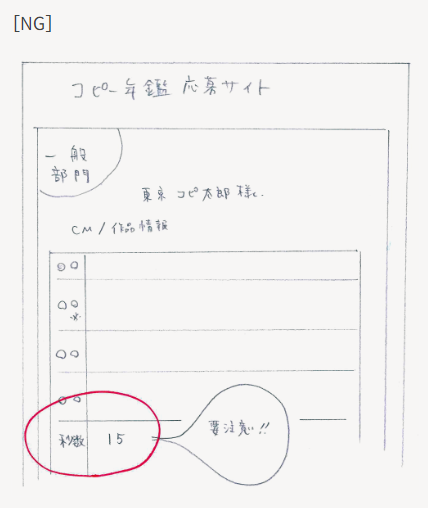 [NG]
コピー年鑑 応募サイト
一般
部門
東京 コピ太郎 様に
CM/作品情報
○○
○○
※
○○
○○
秒数 15
要注意!!